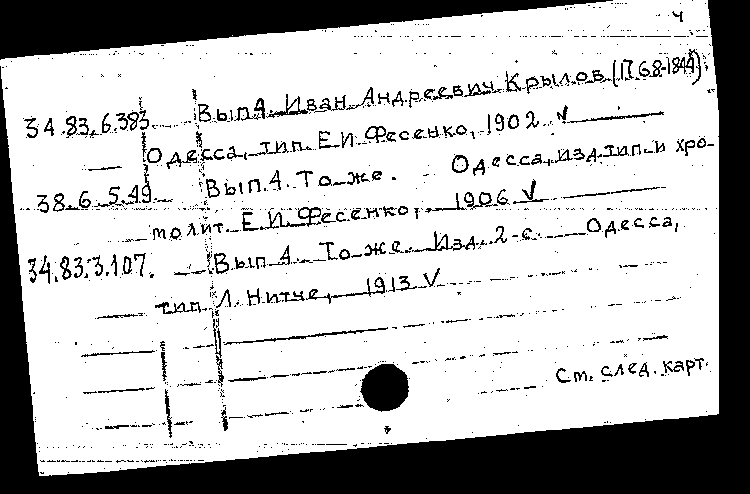 4
34.83.6.383 Вып.4. Иван Андреевич Крылов (1768-1844).
Одесса, тип. Е.И. Фесенко, 1902 ✓
38.6.5.49 Вып.4. То же. Одесса, изд. тип. и хро-
молит. Е.И. Фесенко, 1906 ✓
34.83.3.107. Вып 4. То же. Изд. 2-е. Одесса,
тип. Л. Нитче, 1913 ✓
См. след. карт.